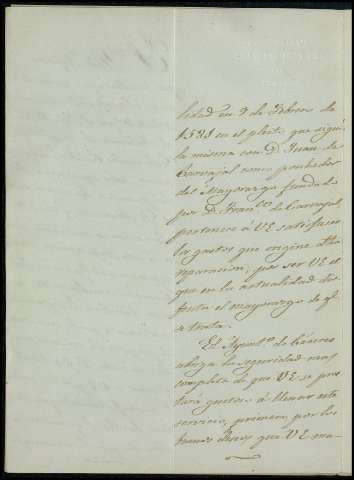 lidad en 7 de Febrero de
1531 en el pleito que siguió
la misma con D. Juan de
Carvajal como poseedor
del Mayorazgo fundado
por D. Fran.co de Carvajal,
pertenece á VE satisfacer
los gastos que origine dha
reparacion; por ser VE el
que en la actualidad dis-
fruta el mayorazgo de q.e
se trata.
El Ayunt.o de Cáceres
abriga la seguridad mas
completa de que VE se pres
tará gustoso á llenar este
servicio, primero, por los
buenos deseos que VE ma-